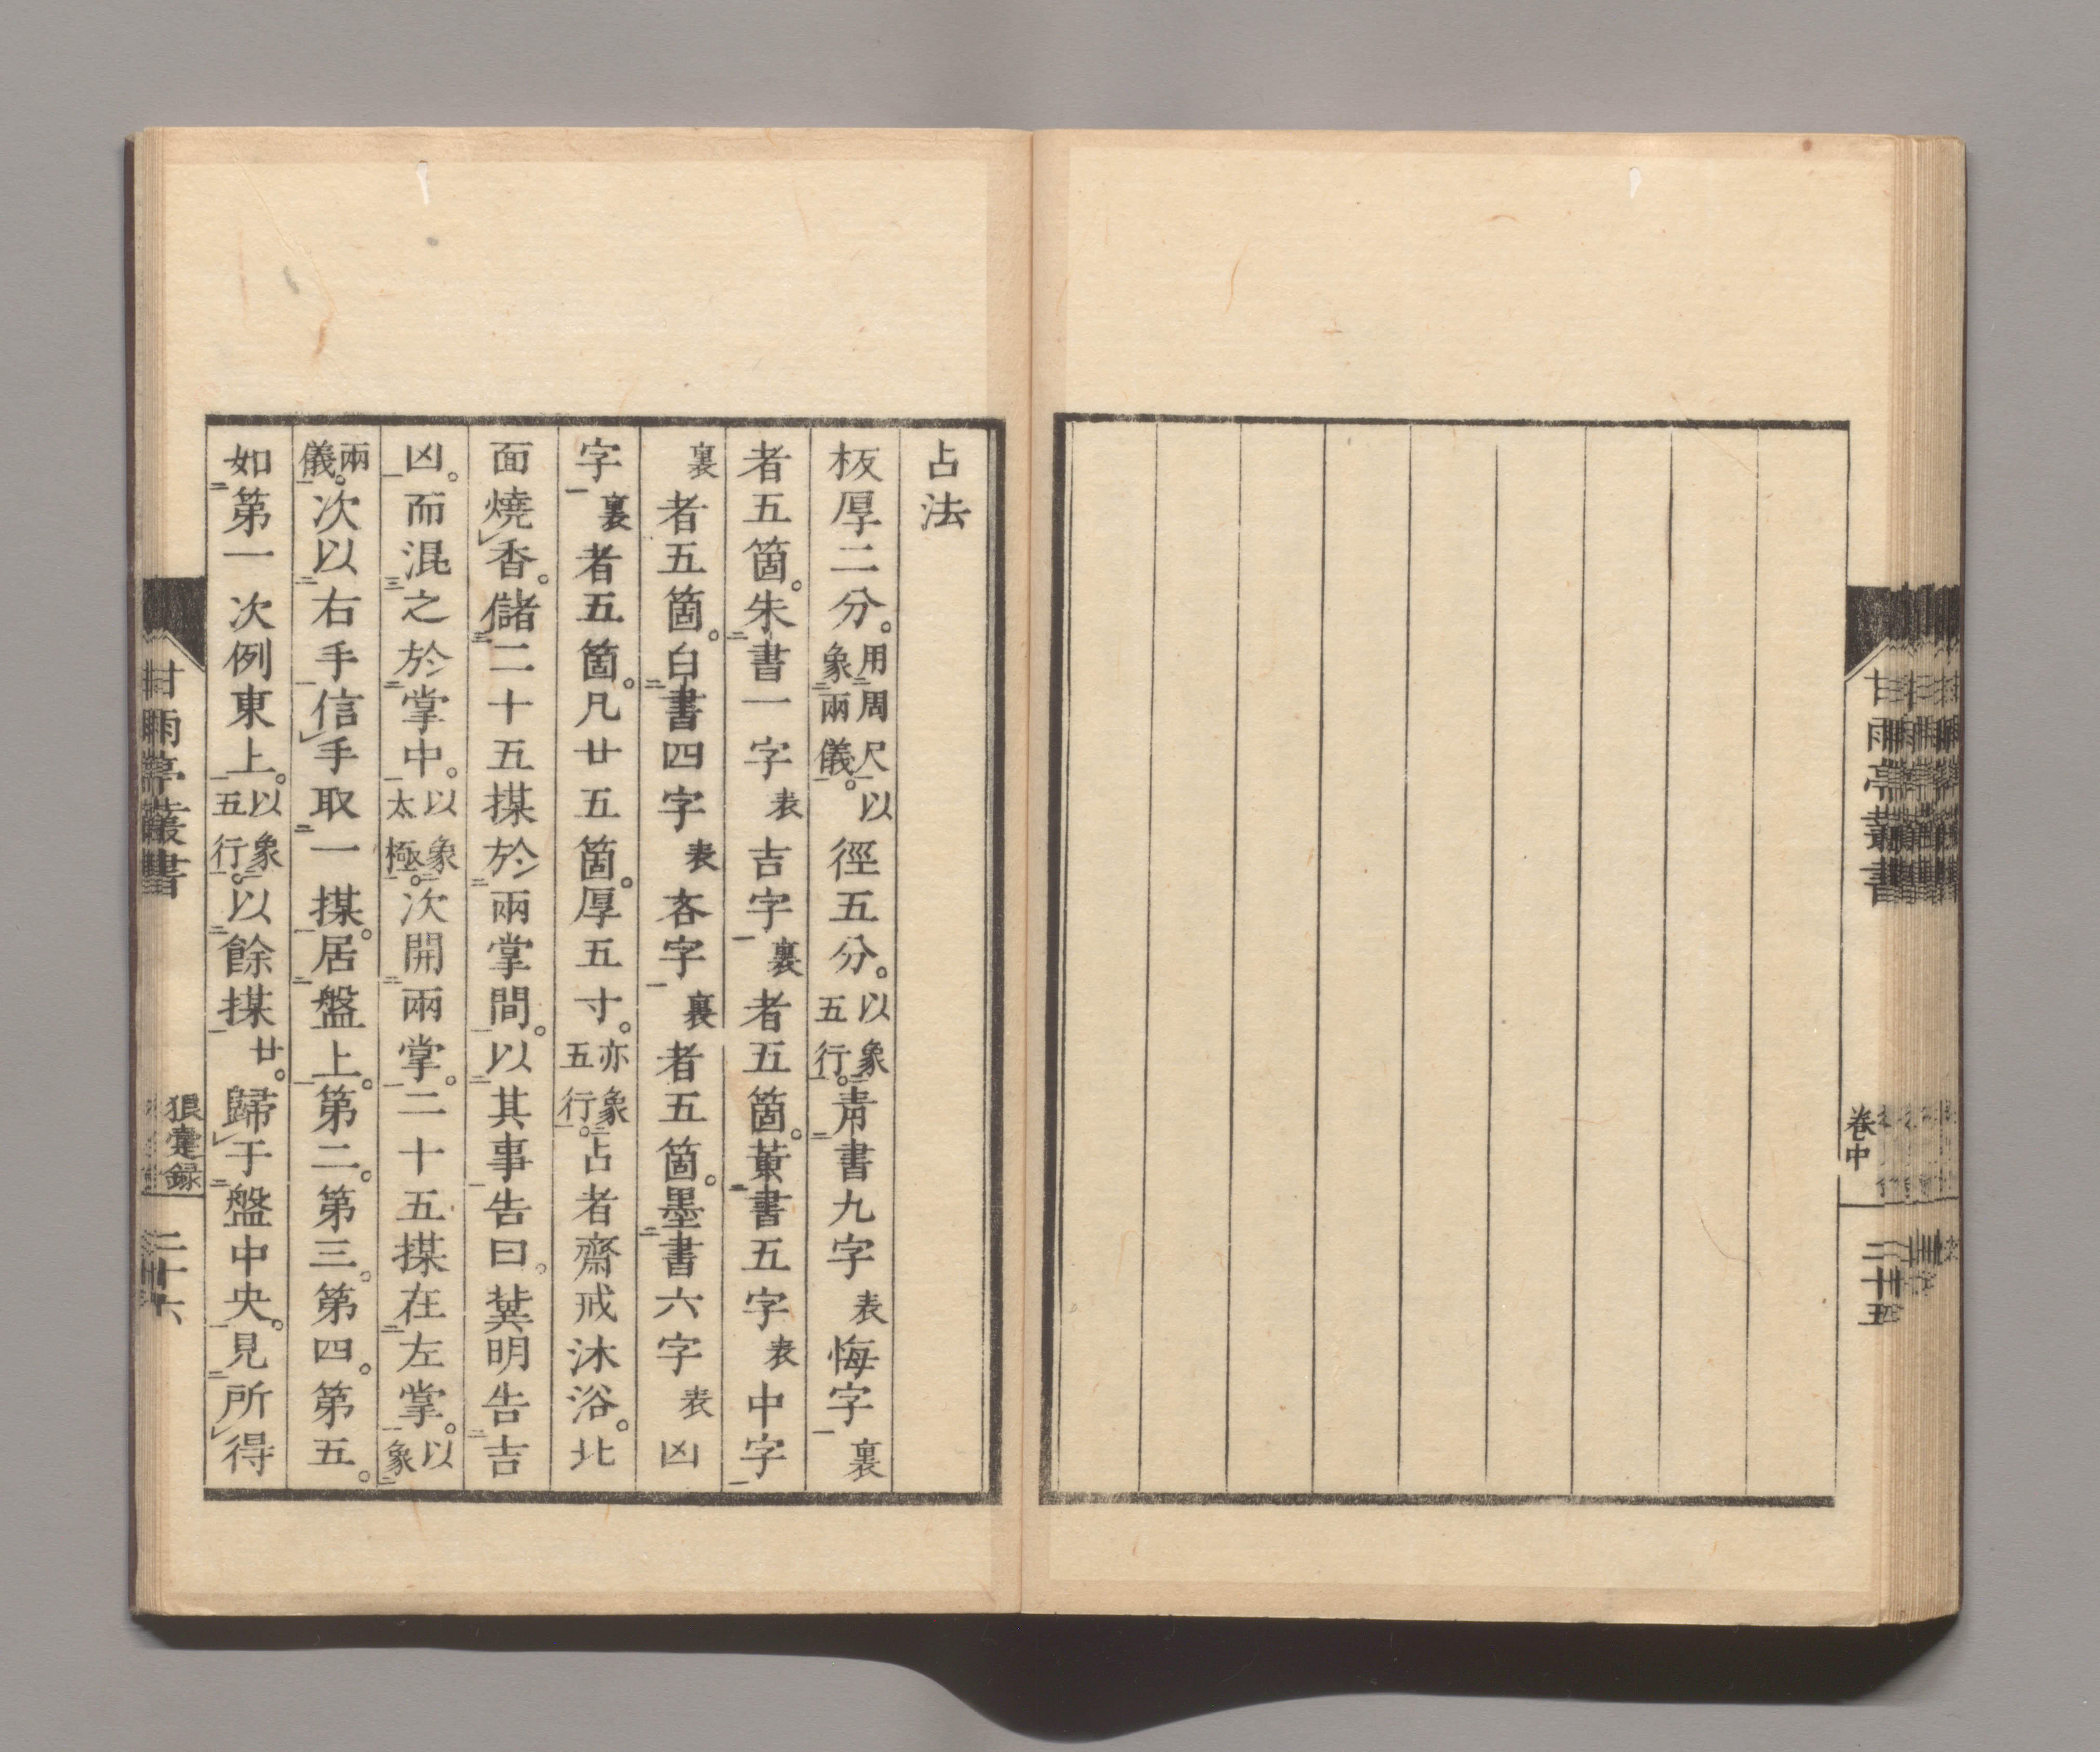 甘雨亭叢書
卷中
二十五
占法
板厚二分。用周尺以象兩儀。徑五分。以象五行。靑書九字表悔字一裏
者五箇。朱二書一字表吉字一裏者五箇。黃二書五字表中字一
裏者五箇。白二書四字表吝字一裏者五箇。墨二書六字表凶
字一裏者五箇。凡廿五箇。厚五寸。亦象五行。占者齋戒沐浴。北
面燒香。儲三二十五揲於二兩掌間一。以二其事一告曰。龔明告二吉
凶一。而混三之於二掌中一。以象太極。次開二兩掌一。二十五揲在二左掌一。以象二
兩儀一。次以二右手一信手取二一揲一。居二盤上一。第二。第三。第四。第五。
如二第一次例東上一。以象五行。以二餘揲一廿。歸于二盤中央一。見二所得
甘雨亭叢書
狼疐録
二十六